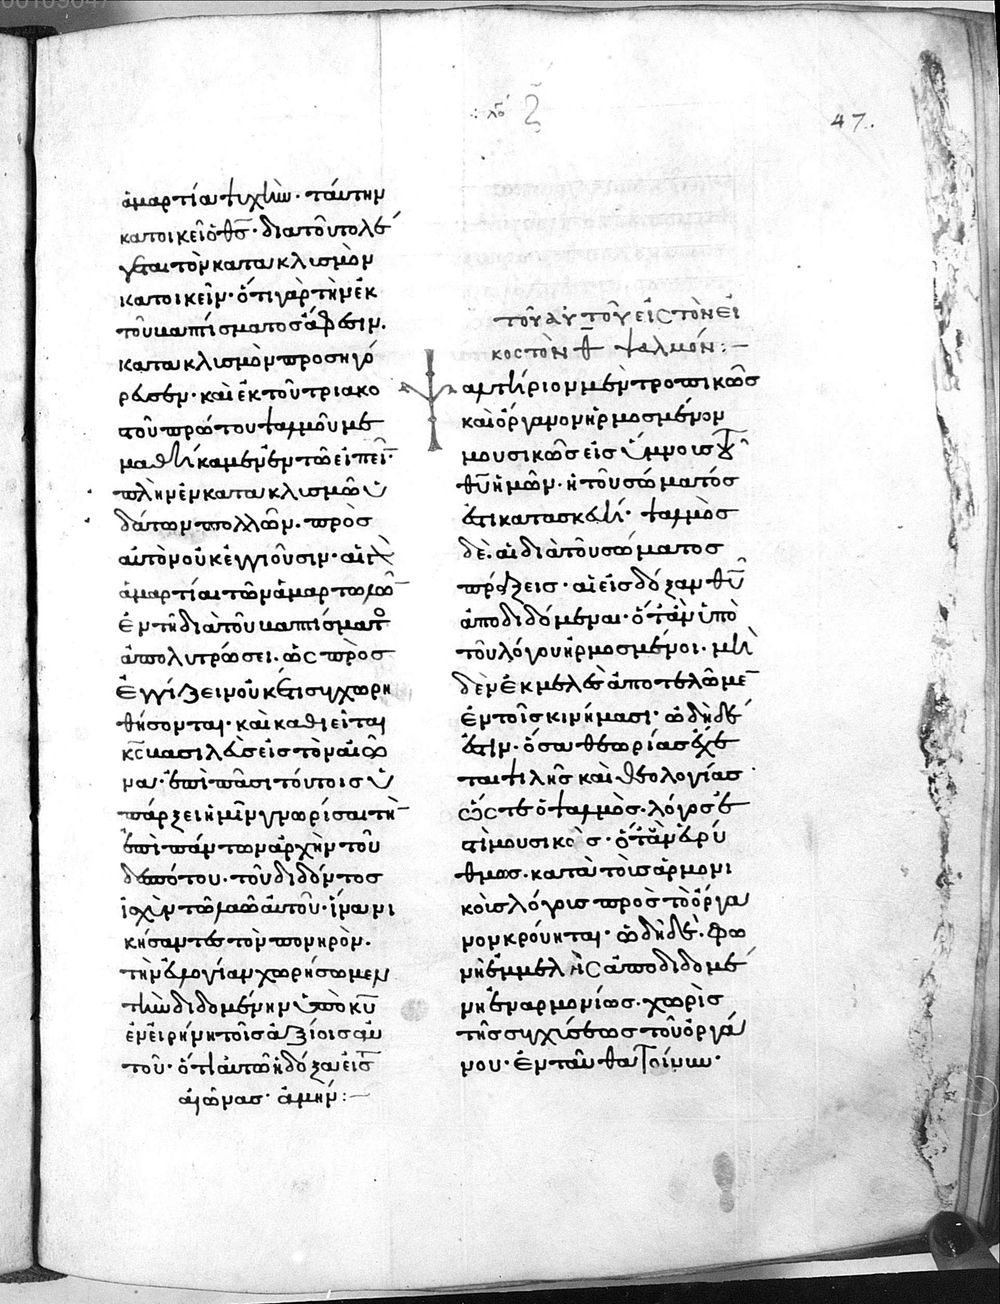 λο ξ̃
47.
ἁμαρτίαν ψυχῶν· ταύτην
κατοικεῖ ὁ θς̅· διατοῦτο λέ
γεται τὸν κατακλυσμὸν
κατοικεῖν· ὅτι γὰρ τὴν ἐκ
τοῦ βαπτίσματος ἄφεσιν.
κατακλυσμὸν προσηγό
ρευσεν· καὶ ἐκ τοῦ τριακο
τοῦ πρώτου ψαλμοῦ με
μαθήκαμεν ἐν τῶ εἰπεῖ̅·
πλὴν ἐν κατακλυσμῶ ὑ
δάτων πολλῶν· πρὸς
αὐτὸν οὐκ ἐγγιοῦσιν· αἱ γὰρ
ἁμαρτίαι τῶν ἁμαρτωλῶ̅
ἐν τῆ διὰ τοῦ βαπτίσματο
ἀπολυτρώσει· ὡς πρὸς
ἐγγίζειν οὐκέτι συγχωρη
θήσονται· καὶ καθιεῖται
κς̅ βασιλεὺς εἰς τὸν αἰῶ
να· ἐπὶ πᾶσι τούτοις ὑ
πάρξει ἡμῖν γνωρίσαι τὴ̅
ἐπὶ πάντων ἀρχὴν τοῦ
δεσπότου· τοῦ διδόντος
ἰσχὺν τῶ λαῶ αὐτοῦ· ἵνα νι
κήσαντες τὸν πονηρὸν·
τὴν εὐλογίαν χωρήσωμεν
τὴν διδομένην ὑπὸ κυ̅
ἐν εἰρήνη τοῖς ἀξίοις αὐ
τοῦ· ὅτι αὐτῶ ἡ δόξα εἰς τ
αἰῶνας· ἀμήν:—
τοῦ αὐτοῦ εἰς τὸν εἰ
κοστὸν θ̅ ψαλμόν:—
Ψαλτήριον μὲν τροπικῶς
καὶ ὄργανον ἡρμοσμένον
μουσικῶς εἰς ὕμνους τοῦ
θυ̅ ἡμῶν· ἡ τοῦ σώματός
ἐστι κατασκευή· ψαλμὸς
δὲ. αἱ διὰ τοῦ σώματος
πράξεις· αἱ εἰς δόξαν θυ̅
ἀποδιδόμεναι· ὅταν ὑπὸ
τοῦ λόγου ἡρμοσμένοι. μη
δὲν ἐκμελὲς ἀποτελῶμε̅
ἐν τοῖς κινήμασι· ὠδὴ δέ
ἐστιν· ὅσα θεωρίας ἔχε
ται ὑψηλῆς καὶ θεολογίας·
ὥστε ὁ ψαλμὸς· λόγος ἐσ
τὶ μουσικὸς· ὅταν εὐρύ
θμως· κατὰ τοὺς ἁρμονι
κοὺς λόγους πρὸς τὸ ὄργα
νον κρούηται· ὠδὴ δὲ· φω
νὴ ἐμμελὴς ἀποδιδομέ
νη ἐναρμονίως· χωρὶς
τῆς συνηχήσεως τοῦ ὀργά
νου· ἐνταῦθα τοίνυν·